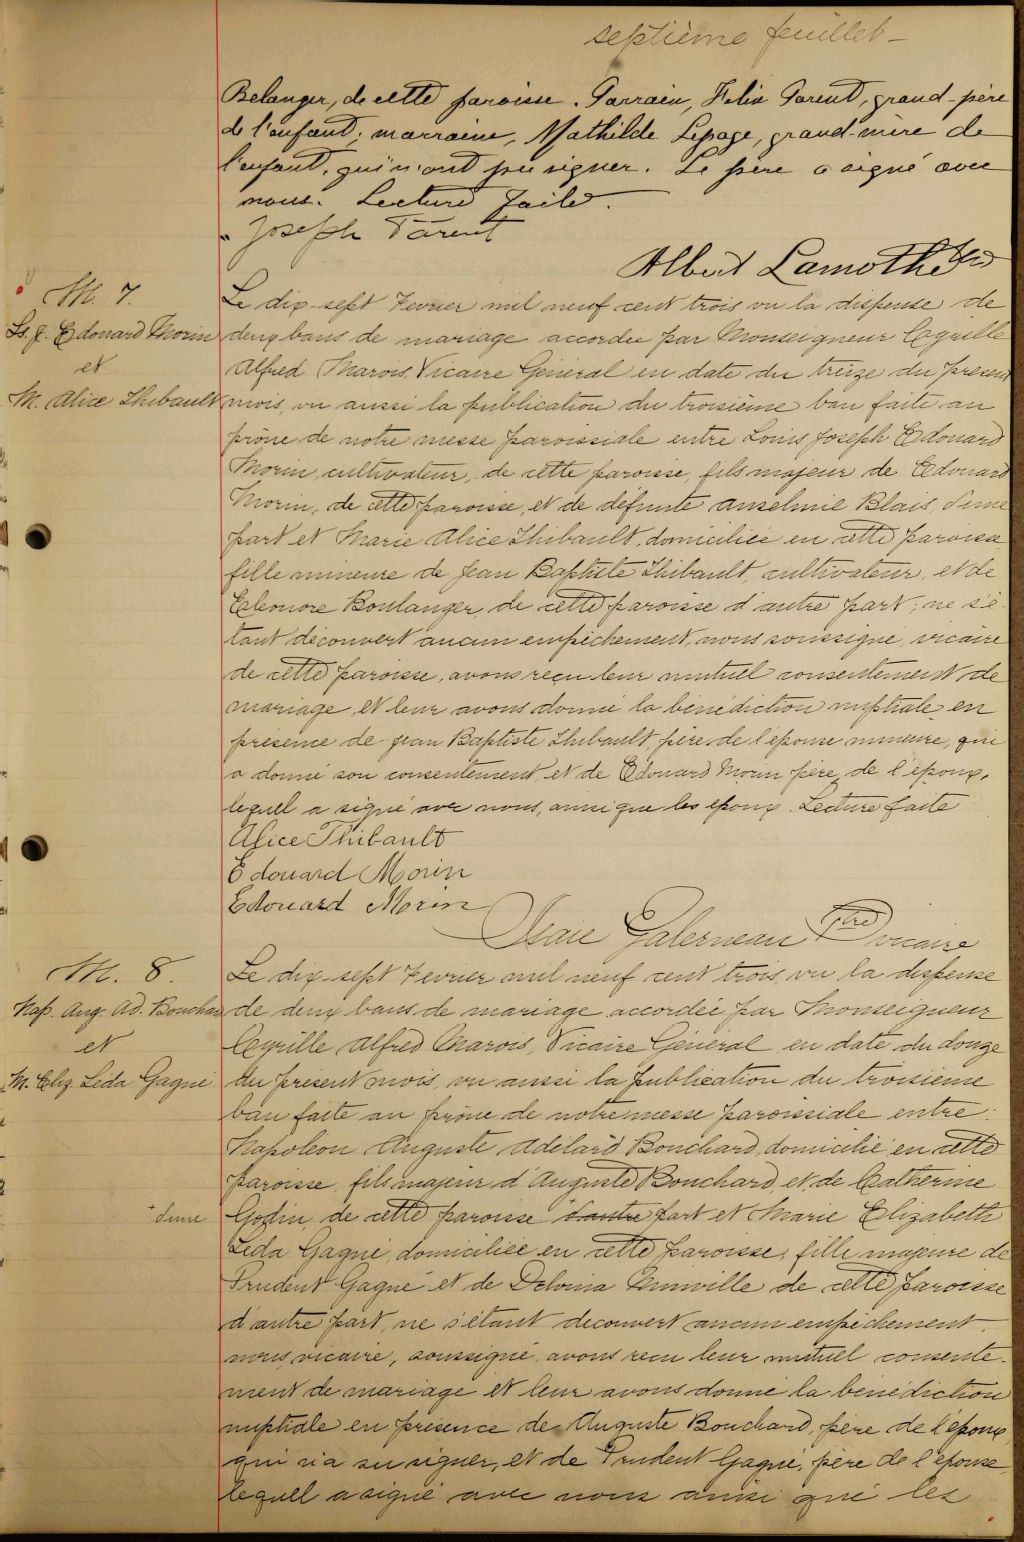 septième feuillet -
Belanger, de cette paroisse. Parrain, Felix Parent, grand-père
de l'enfant; marraine, Mathilde Lepage, grand-mère de
l'enfant, qui n'ont pu signer. Le père a signé avec
nous. Lecture faite.
Joseph Parent
Albert Lamothe Ptre
M. 7.
Ls. J. Edouard Morin
et
M. Alice Thibault
Le dix-sept Fevrier mil neuf cent trois vu la dispense de
deux bans de mariage accordée par Monseigneur Cyrille
Alfred Marois, Vicaire Général en date du treize du présent
mois, vu aussi la publication du troisième ban faite au
prône de notre messe paroissiale entre Louis Joseph Edouard
Morin, cultivateur, de cette paroisse, fils majeur de Edouard
Morin, de cette paroisse, et de défunte Anselmie Blais, d'une
part et Marie Alice Thibault, domiciliée en cette paroisse,
fille mineure de Jean Baptiste Thibault, cultivateur, et de
Eleonore Boulanger, de cette paroisse d'autre part; ne s'é-
tant découvert aucun empêchement, nous soussigné, vicaire
de cette paroisse, avons reçu leur mutuel consentement de
mariage, et leur avons donné la bénédiction nuptiale en
présence de Jean Baptiste Thibault, père de l'épouse mineure, qui
a donné son consentement, et de Edouard Morin père de l'époux,
lequel a signé avec nous, ainsi que les époux. Lecture faite
Alice Thibault
Edouard Morin
Edouard Morin
Isaie Galerneau Ptre vicaire
M. 8.
Nap. Aug. Ad. Bouchard
et
M. Eliz Léda Gagné
Le dix-sept Fevrier mil neuf cent trois, vu la dispense
de deux bans de mariage accordée par Monseigneur
Cyrille Alfred Marois, Vicaire Général en date du douze
du présent mois, vu aussi la publication du troisième
ban faite au prône de notre messe paroissiale entre:
Napoleon Auguste Adélard Bouchard, domicilié en cette
paroisse, fils majeur d'Auguste Bouchard et de Catherine
+ d'une
Godin, de cette paroisse + d'autre part et Marie Elizabeth
Léda Gagné, domiciliée en cette paroisse, fille majeure de
Prudent Gagné et de Delvina Miville de cette paroisse
d'autre part, ne s'étant decouvert aucun empêchement,
nous vicaire, soussigné avons reçu leur mutuel consente-
ment de mariage et leur avons donné la bénédiction
nuptiale en présence de Auguste Bouchard, père de l'époux,
qui n'a su signer, et de Prudent Gagné, père de l'épouse,
lequel a signé avec nous ainsi que les